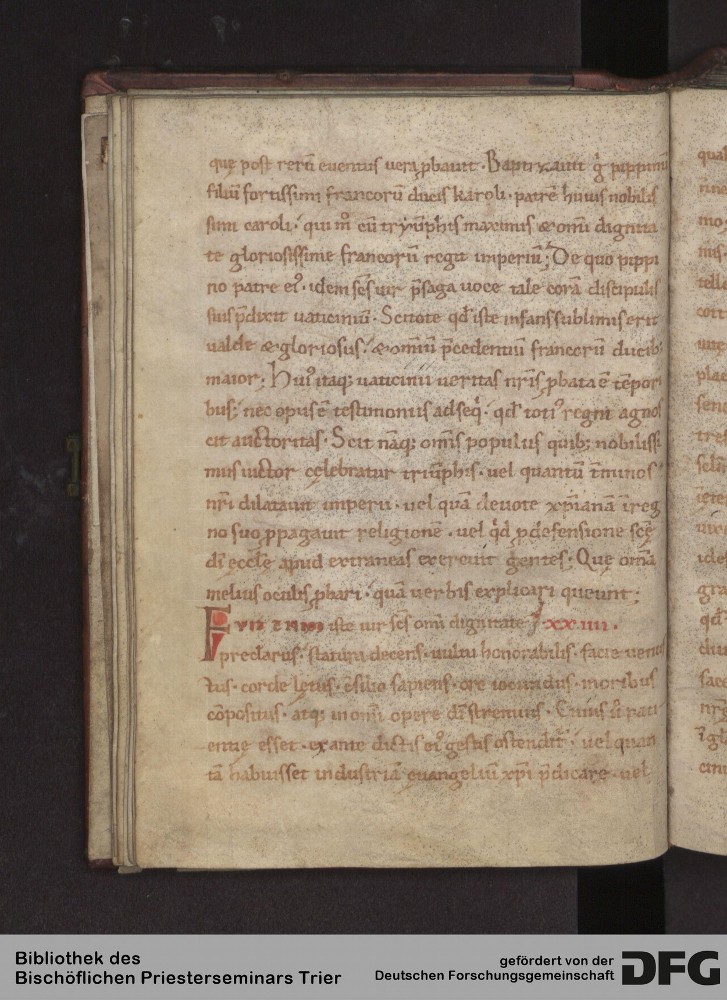 quę post rerū euentus uera ꝓbauit · Baptizauit g̊ pippinū
filiū fortissimi francorū ducis karoli · patrē huius nobilis
simi caroli · qui m̊ cū tryūphis maximis & omni dignita
te gloriosissime francorū regit imperiū ; De quo pippi
no patre ei᾽ · idem sc̄s uir p̄saga uoce tale corā discipulis
suis p̄dixit uaticiniū · Scitote qd̄ iste infans sublimis erit
ualde & gloriosus · & omniū p̄cedentiū francorū ducib;
maior ; Hui᾽ itaq; uaticinii ueritas nr̄is ꝓbata ē tēpori
bus ; nec opus ē testimoniis adseq̇ · qd̄ toti᾽ regni agnos
cit auctoritas · Scit nāq; omīs populus quib; nobilissi
mus uictor celebratur triūphis · uel quantū t̄minos
nr̄i dilatauit imperii · uel quā deuote xp̄ianā ī reg
no suo ꝓpagauit religionē · uel qd̄ ꝓ defensione scę̄
dī eccłe apud extraneas exercuit gentes · Que om̄a
melius oculis ꝓbari · quā uerbis explicari queunt ;
FVIT ENIM iste uir scs̄ omi dignitate XXIIII ·
preclarus · statura decens · uultu honorabilis · facie uenus
tus · corde lętus · c̄silio sapiens · ore iocundus · moribus
cōpositus · atq; in omī opere dī strenuus · Cuius ū pati
entię esset · ex ante dictis ei᾽ gestis ostendit᷑ · uel quan
tā habuisset industriā euangeliū xp̄i p̄dicare · uel
qual
mo
nis
telle
cōtt
plac
tres
gra
qd̄
diu
sace
nrē
cinu
Bibliothek des
Bischöflichen Priesterseminars Trier
gefördert von der
Deutschen Forschungsgemeinschaft
DFG